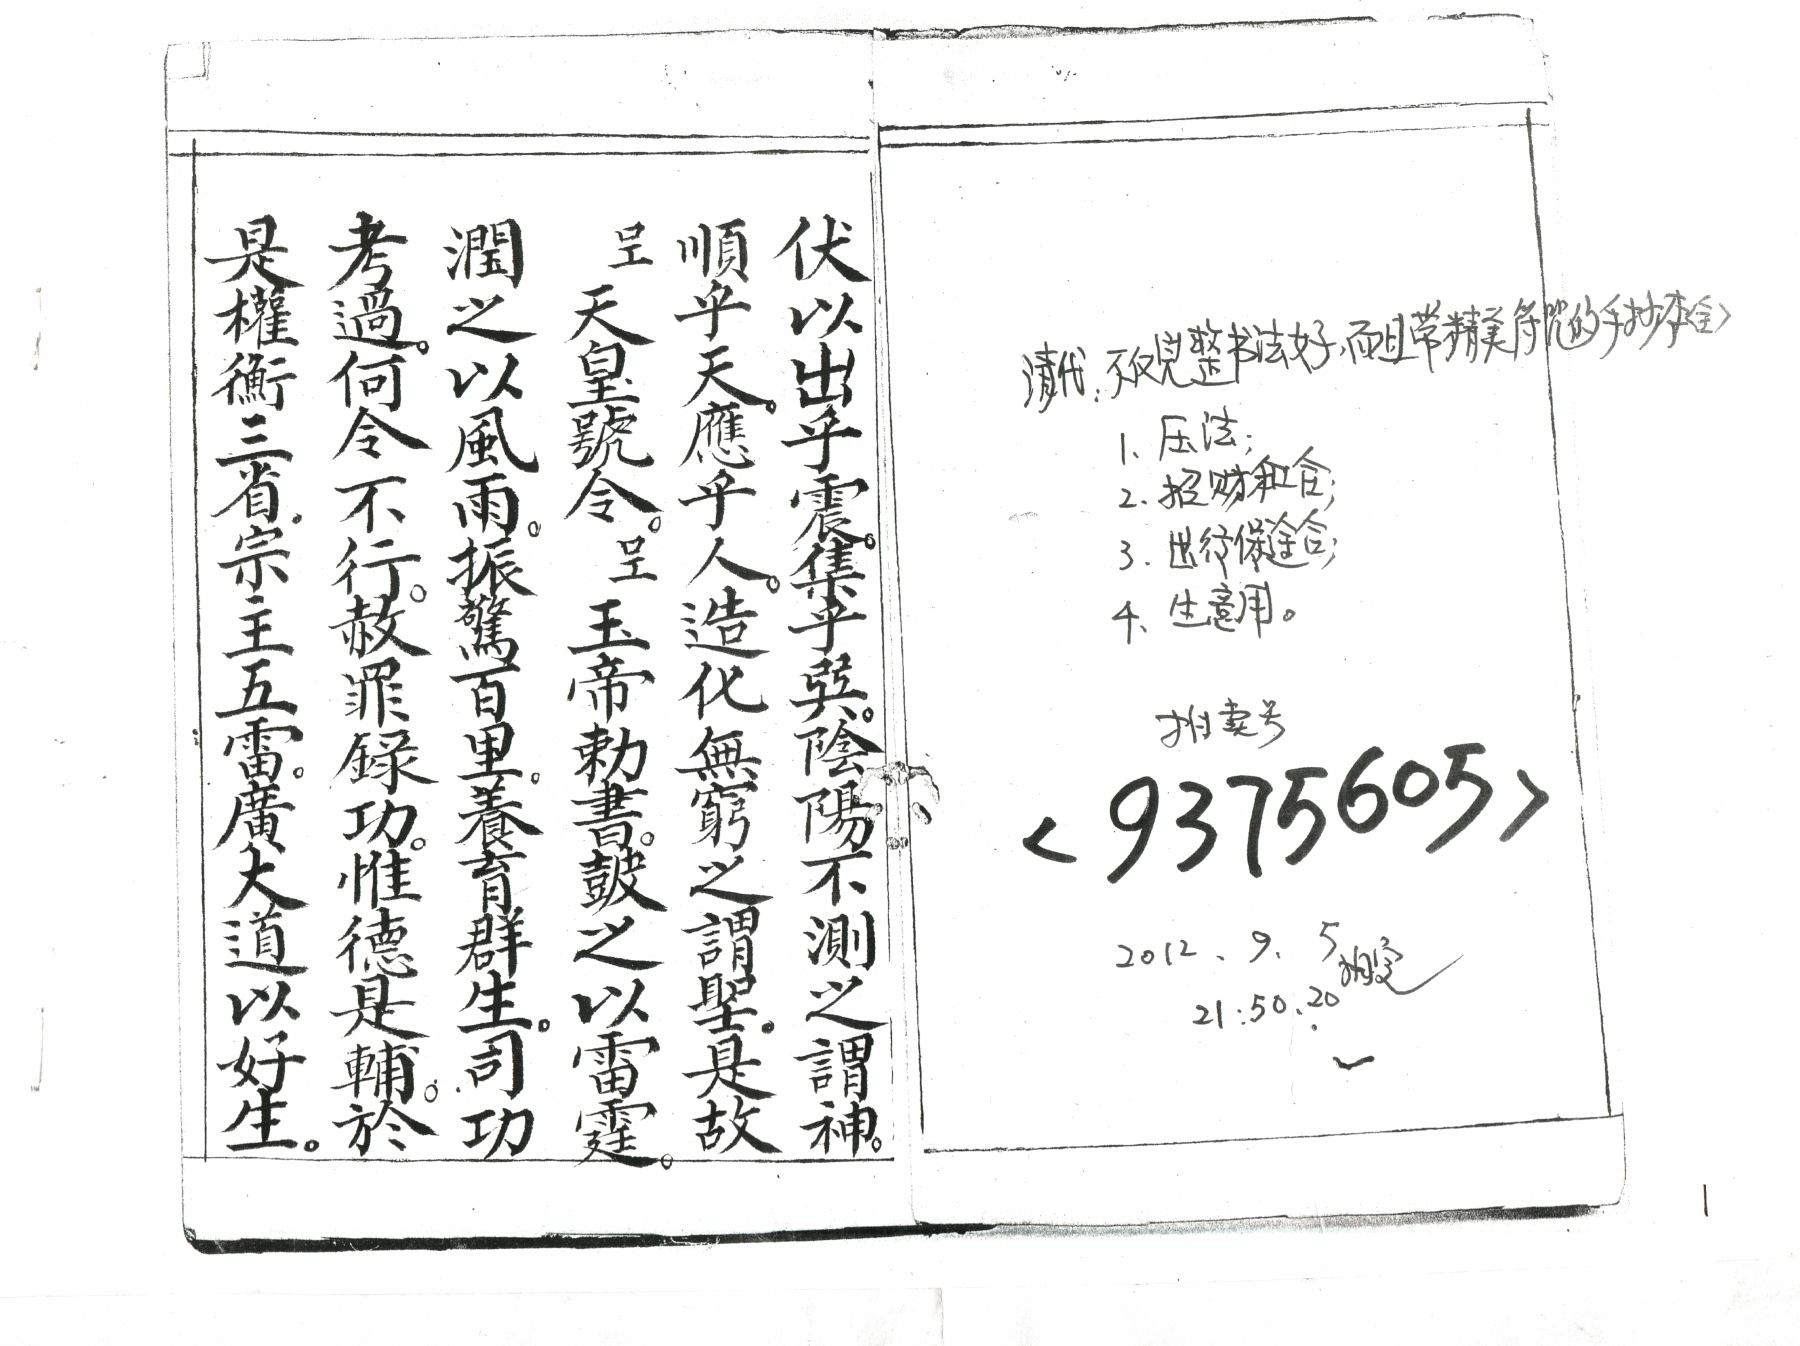 清代：不仅完整书法好，而且带精美符咒的手抄本全>
1、压法；
2、招财和合；
3、出行保途合；
4、生意用。
拍卖号
<9375605>
2012、9、5
21:50.20
伏以出乎震。集乎巽。陰陽不測之謂神。
順乎天。應乎人。造化無窮之謂聖。是故
呈天皇號令。呈玉帝勅書。鼓之以雷霆。
潤之以風雨。振驚百里。養育群生。司功
考過。何令不行。赦罪錄功。惟德是輔。於
是權衡三省。宗主五雷。廣大道以好生。